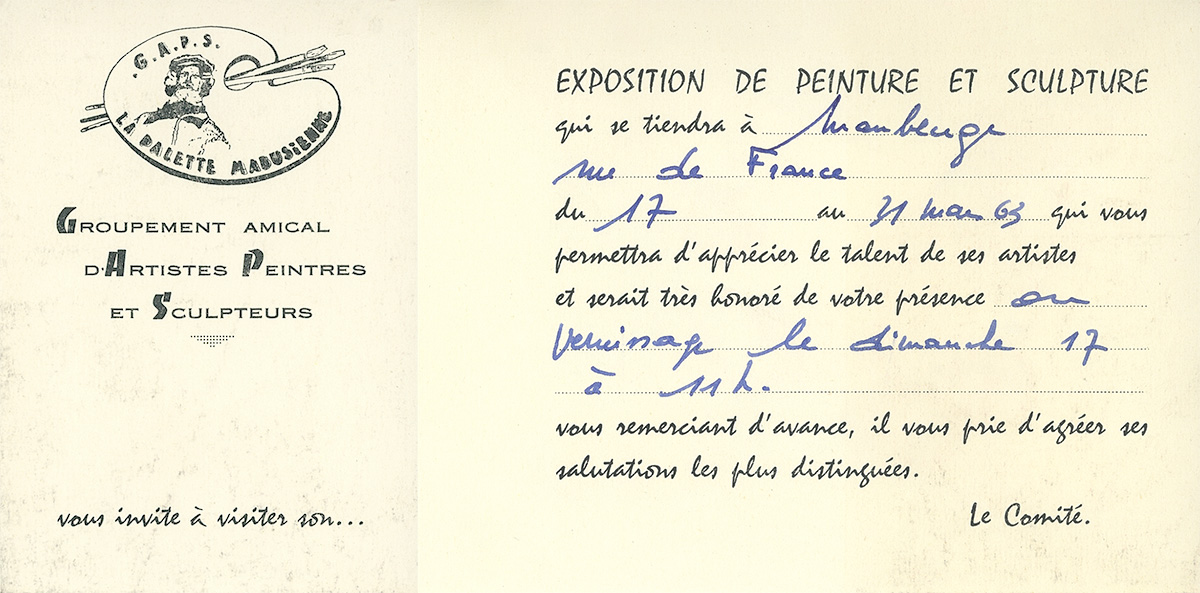 .G.A.P.S.
LA PALETTE MABUSIENNE
GROUPEMENT AMICAL
D'ARTISTES PEINTRES
ET SCULPTEURS
vous invite à visiter son...
EXPOSITION DE PEINTURE ET SCULPTURE
qui se tiendra à Maubeuge
rue de France
du 17 au 31 mars 63 qui vous
permettra d'apprécier le talent de ses artistes
et serait très honoré de votre présence au
Vernissage le dimanche 17
à 11 h.
vous remerciant d'avance, il vous prie d'agréer ses
salutations les plus distinguées.
Le Comité.